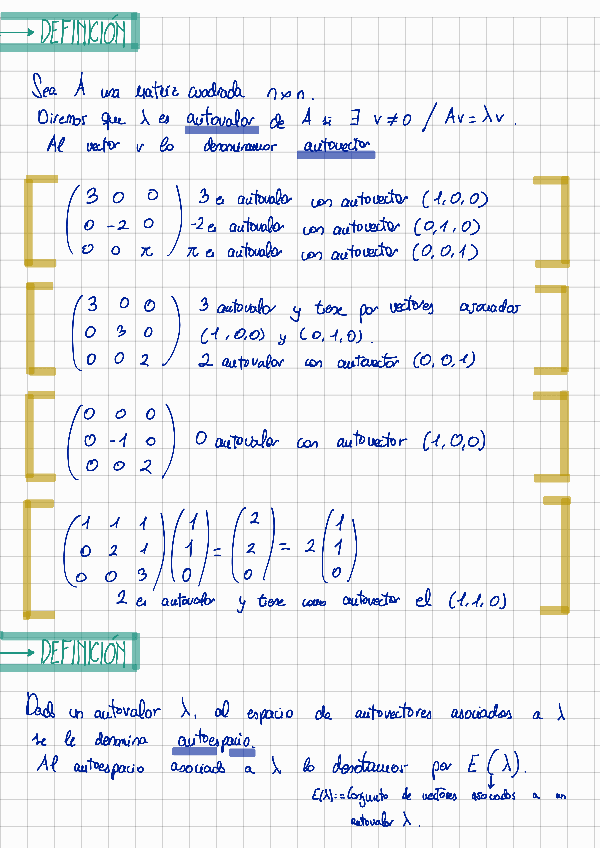 → DEFINICIÓN
Sea A una matriz cuadrada n×n.
Diremos que λ es autovalor de A si ∃ v≠0 / Av=λv.
Al vector v lo denominamos autovector
3 0 0 3 es autovalor con autovector (1,0,0)
0 -2 0 -2 es autovalor con autovector (0,1,0)
0 0 π π es autovalor con autovector (0,0,1)
3 0 0 3 autovalor y tiene por vectores asociados
0 3 0 (1,0,0) y (0,1,0).
0 0 2 2 autovalor con autovector (0,0,1)
0 0 0
0 -1 0 0 autovalor con autovector (1,0,0)
0 0 2
1 1 1 1 2 1
0 2 1 1 = 2 = 2 1
0 0 3 0 0 0
2 es autovalor y tiene como autovector el (1,1,0)
→ DEFINICIÓN
Dado un autovalor λ, al espacio de autovectores asociados a λ
se le denmina autoespacio.
Al autoespacio asociado a λ lo denotamos por E(λ).
E(λ):=Conjunto de vectores asociados a un
autovalor λ.